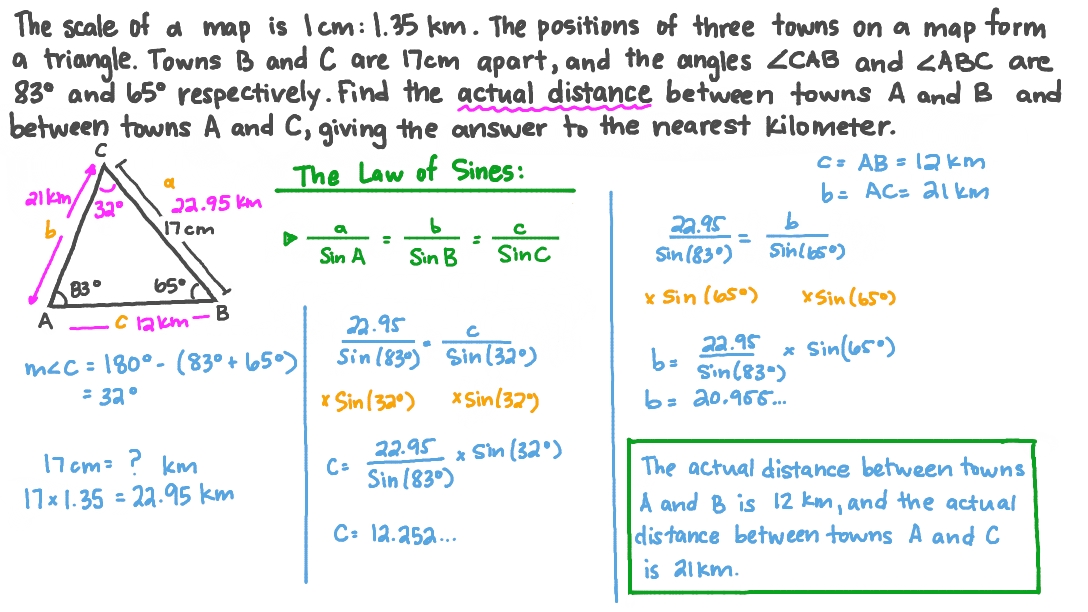 The scale of a map is 1cm:1.35 km. The positions of three towns on a map form
a triangle. Towns B and C are 17cm apart, and the angles ∠CAB and ∠ABC are
83° and 65° respectively. Find the actual distance between towns A and B and
between towns A and C, giving the answer to the nearest kilometer.
C
21km
32°
a
22.95 km
17cm
b
83°
65°
A
c 12km
B
m∠C = 180° - (83° + 65°)
= 32°
17cm = ? km
17 × 1.35 = 22.95 km
The Law of Sines:
a/Sin A = b/Sin B = c/Sin C
22.95/Sin(83°) = c/Sin(32°)
× Sin(32°) × Sin(32°)
C = 22.95/Sin(83°) × Sin(32°)
C = 12.252...
c = AB = 12 km
b = AC = 21 km
22.95/Sin(83°) = b/Sin(65°)
× Sin(65°) × Sin(65°)
b = 22.95/Sin(83°) × Sin(65°)
b = 20.955...
The actual distance between towns
A and B is 12 km, and the actual
distance between towns A and C
is 21km.